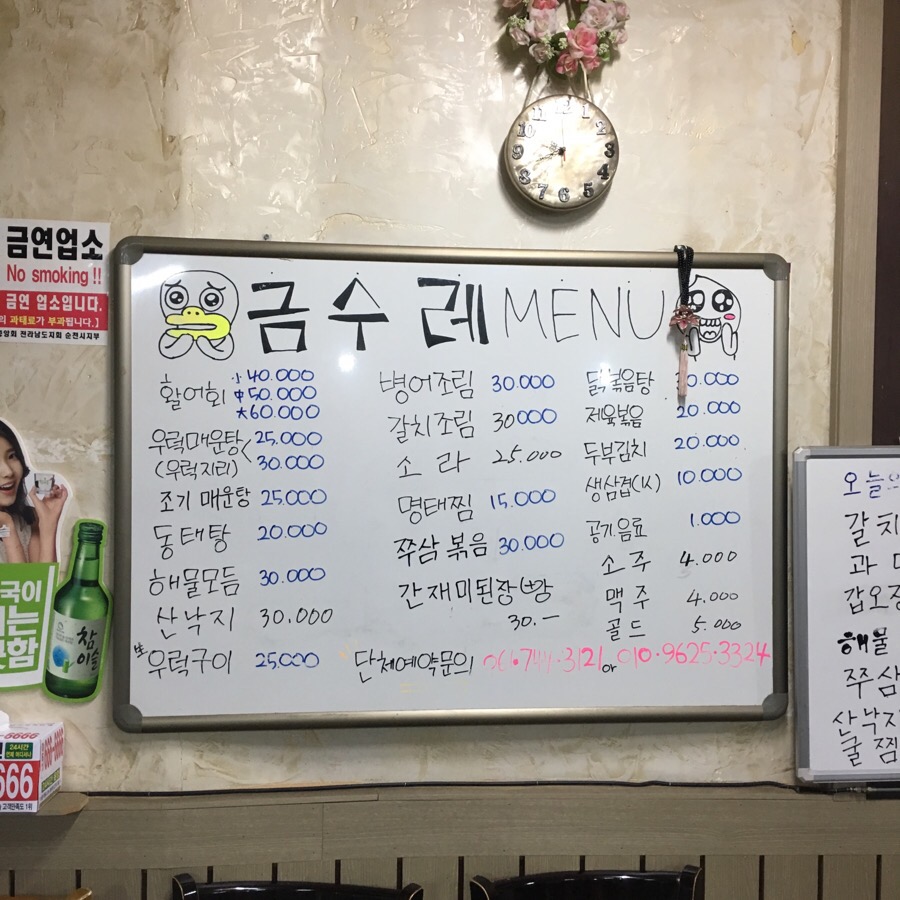 금연업소
No smoking !!
금연 업소입니다.
과태료가 부과됩니다.]
전라남도지회 순천시지부
금수레 MENU
활어회 小 40.000
中 50.000
大 60.000
우럭매운탕 25.000
(우럭지리) 30.000
조기 매운탕 25.000
동태탕 20.000
해물모듬 30.000
산낙지 30.000
生 우럭구이 25.000
병어조림 30.000
갈치조림 30000
소라 25.000
명태찜 15.000
쭈삼볶음 30.000
간재미된장
30.—
닭볶음탕
제육볶음 20.000
두부김치 20.000
생삼겹(1人) 10.000
공기.음료 1.000
소주 4.000
맥주 4.000
골드 5.000
단체예약문의 061.744.3121 or 010.9625.3324
갈치
과
갑오징
해물
쭈삼
산낙지
굴찜
참이슬
24시간
666
고객만족도 1위
12 1 2 3 4 5 6 7 8 9 10 11